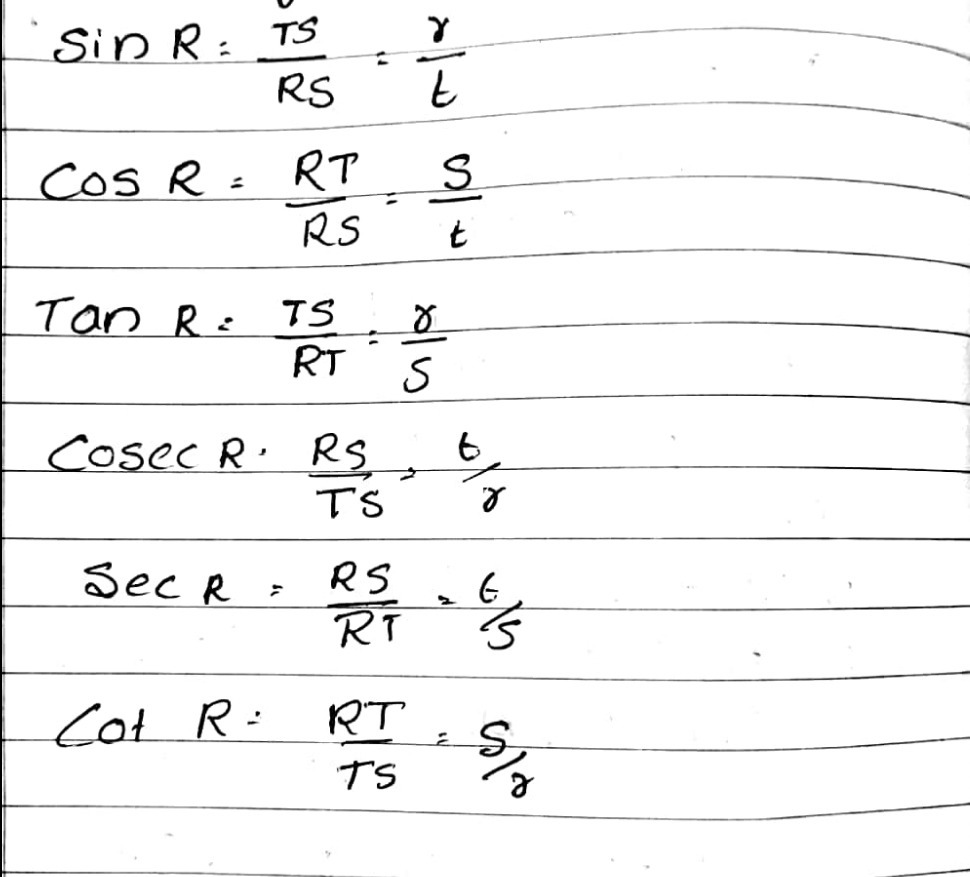 Sin R = TS/RS = r/t
Cos R = RT/RS = S/t
Tan R = TS/RT = r/S
Cosec R = RS/TS = t/r
Sec R = RS/RT = t/S
Cot R = RT/TS = S/r